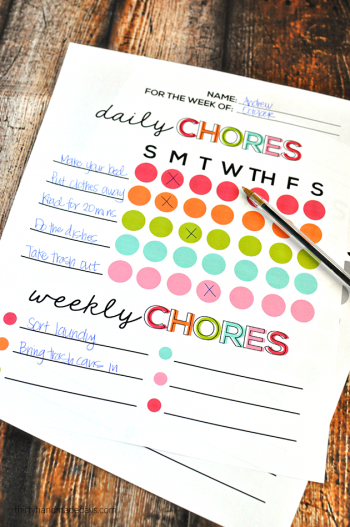 NAME: Andrew
FOR THE WEEK OF:
daily CHORES
S M T W TH F S
Make your bed
Put clothes away
Read for 20 mins
Do the dishes
Take trash out
weekly CHORES
Sort laundry
Bring trash cans in
thirtyhandmadedays.com